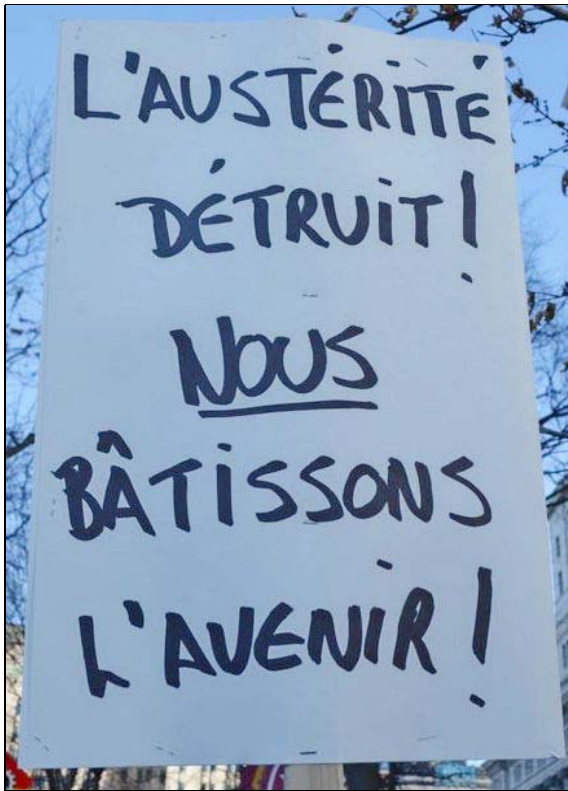 L'AUSTÉRITÉ
DÉTRUIT!
NOUS
BÂTISSONS
L'AVENIR!